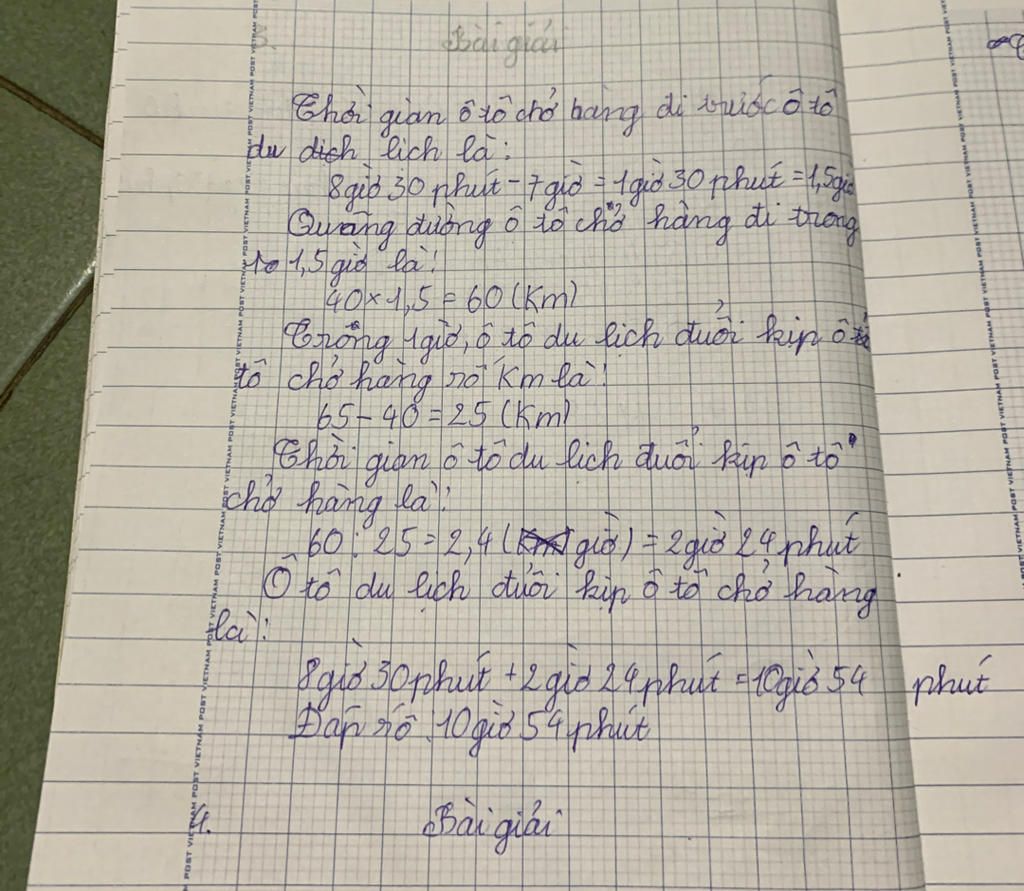 3. Bài giải
Thời gian ô tô chở hàng đi trước ô tô
du dịch lich là:
8giờ 30 phút - 7giờ = 1giờ 30 phút = 1,5giờ
Quãng đường ô tô chở hàng đi trong
1,5 giờ là:
40 × 1,5 = 60 (Km)
Trong 1giờ, ô tô du lịch đuổi kịp ô
tô chở hàng số Km là:
65 - 40 = 25 (Km)
Thời gian ô tô du lịch đuổi kịp ô tô
chở hàng là:
60 : 25 = 2,4 (giờ) = 2giờ 24 phút
Ô tô du lịch đuổi kịp ô tô chở hàng
là:
8giờ 30 phút + 2giờ 24 phút = 10giờ 54 phút
Đáp số: 10giờ 54 phút
4. Bài giải
VIETNAM POST VIETNAM POST VIETNAM POST